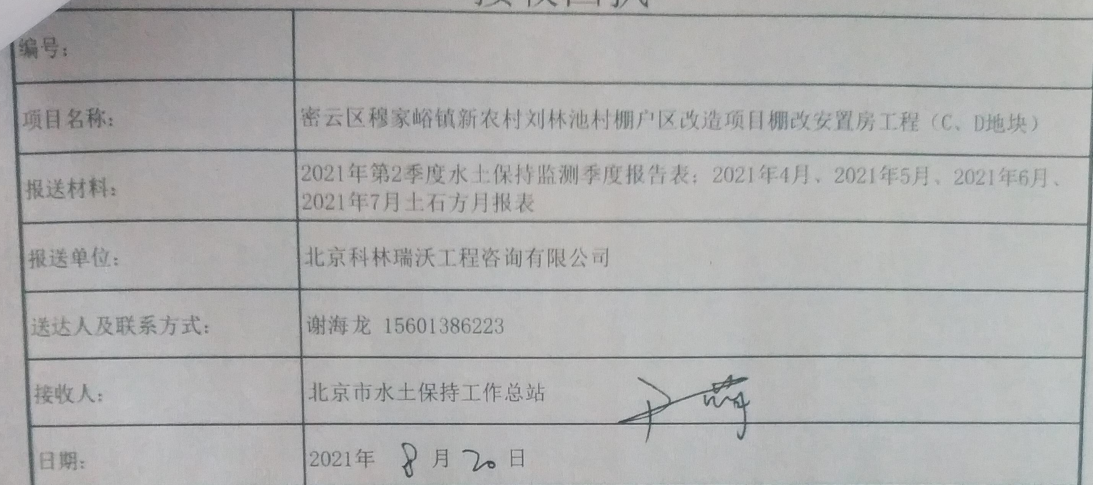 接收回执
编号：
项目名称： 密云区穆家峪镇新农村刘林池村棚户区改造项目棚改安置房工程（C、D地块）
报送材料： 2021年第2季度水土保持监测季度报告表；2021年4月、2021年5月、2021年6月、
2021年7月土石方月报表
报送单位： 北京科林瑞沃工程咨询有限公司
送达人及联系方式： 谢海龙 15601386223
接收人： 北京市水土保持工作总站
日期： 2021年 8 月 20 日